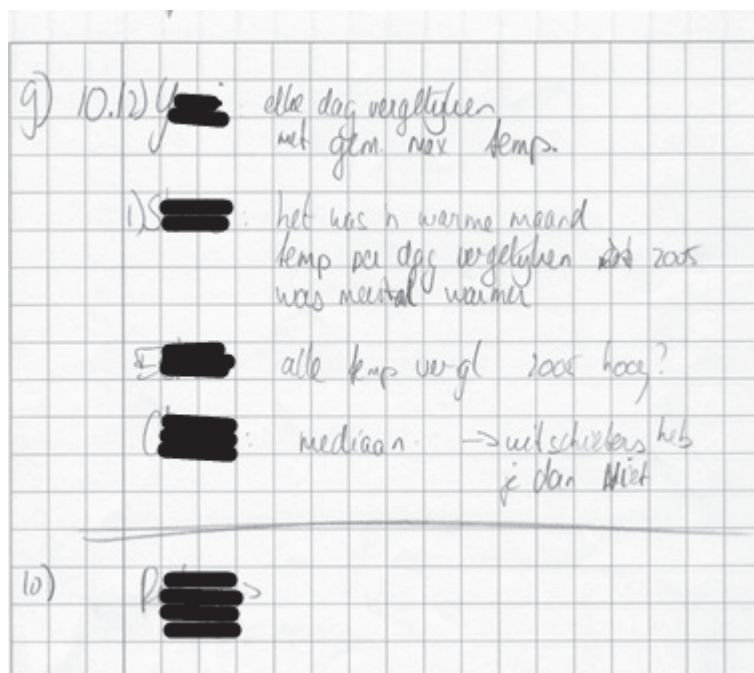 9) 10.12) Y : elke dag vergelijken
met gem. max temp.
1) S : het was 'n warme maand
temp per dag vergelijken 2005
was meestal warmer
E alle temp vergl 2005 hoog?
C : mediaan → uitschieters heb
je dan niet
10) R